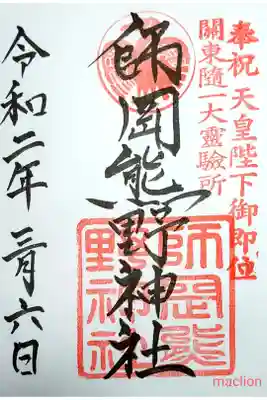 奉祝 天皇陛下御即位
関東随一大霊験所
師岡熊野神社
師岡熊野神社
令和二年 三月 六日
maclion